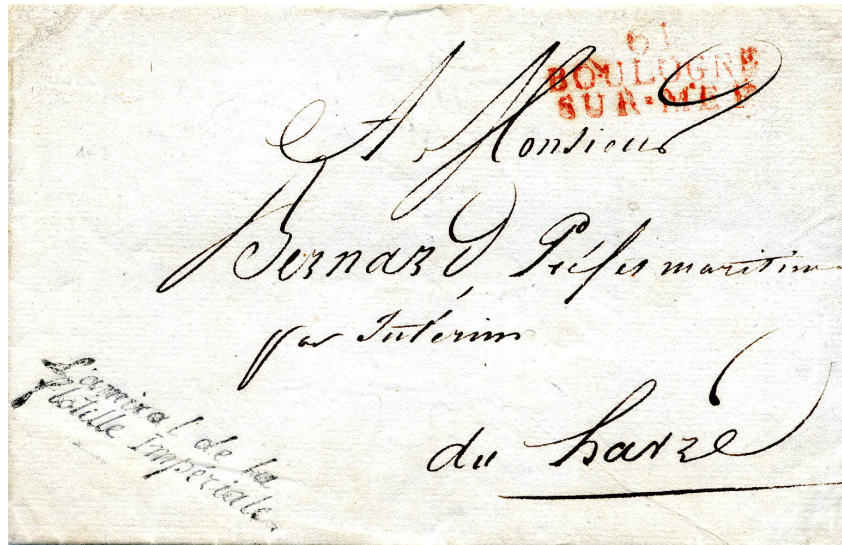 61
BOULOGNE
SUR-MER
A Monsieur
Bernard Préfet maritime
par Intérim
du havre
L'amiral de la
flotille Impériale.